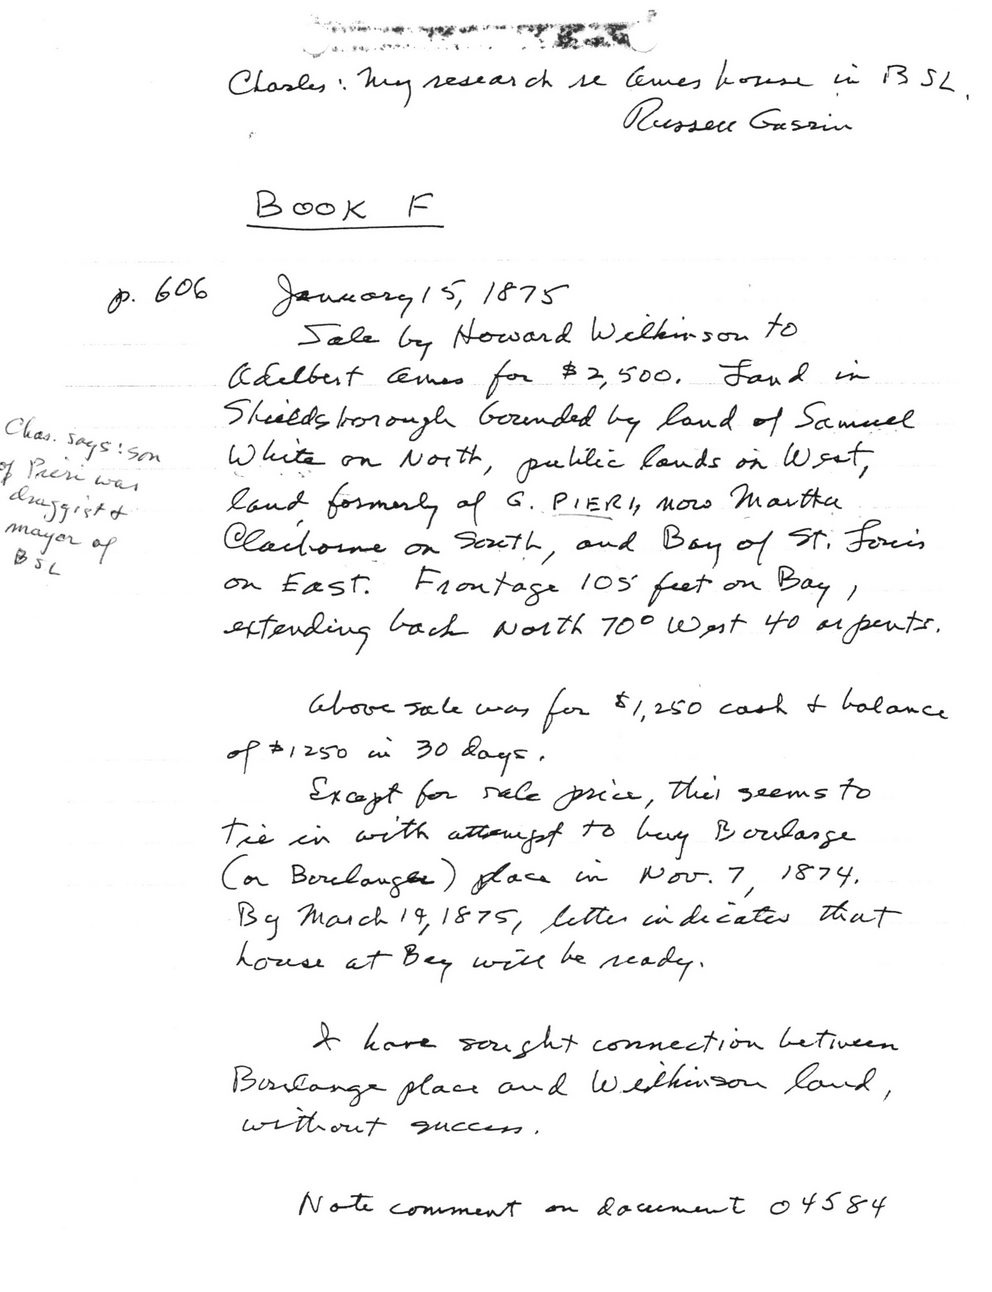 Charles: My research re Ames house in BSL.
Russell Guerin
BOOK F
p. 606 January 15, 1875
Sale by Howard Wilkinson to
Adelbert Ames for $2,500. Land in
Shieldsborough bounded by land of Samuel
White on North, public lands on West,
land formerly of G. PIERI, now Martha
Claiborne on South, and Bay of St. Louis
on East. Frontage 105 feet on Bay,
extending back North 70° West 40 arpents.
Chas. says: son
of Pieri was
druggist &
mayor of
BSL
Above sale was for $1,250 cash & balance
of $1250 in 30 days.
Except for sale price, this seems to
tie in with attempt to buy Boulange
(or Boulanger) place in Nov. 7, 1874.
By March 19, 1875, letter indicates that
house at Bay will be ready.
I have sought connection between
Boulange place and Wilkinson land,
without success.
Note comment on document 04584